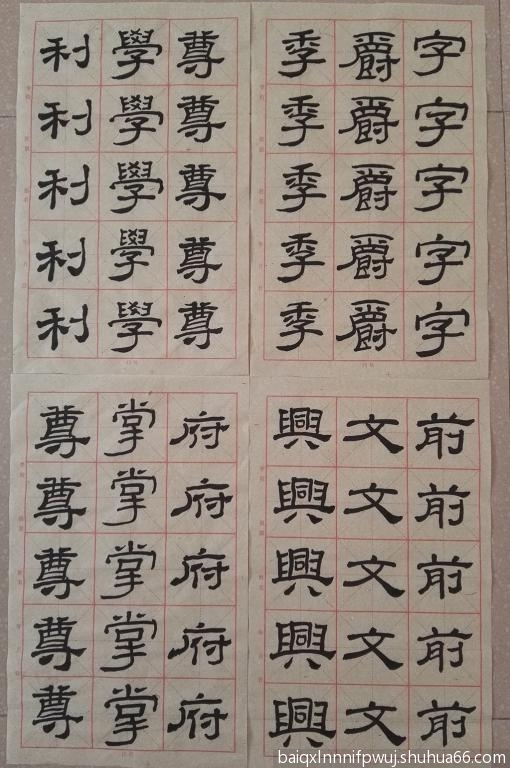 字字字字字
爵爵爵爵爵
季季季季季
尊尊尊尊尊
學學學學學
利利利利利
前前前前前
文文文文文
興興興興興
府府府府府
掌掌掌掌掌
尊尊尊尊尊
baiqxlnnnifpwuj.shuhua66.com